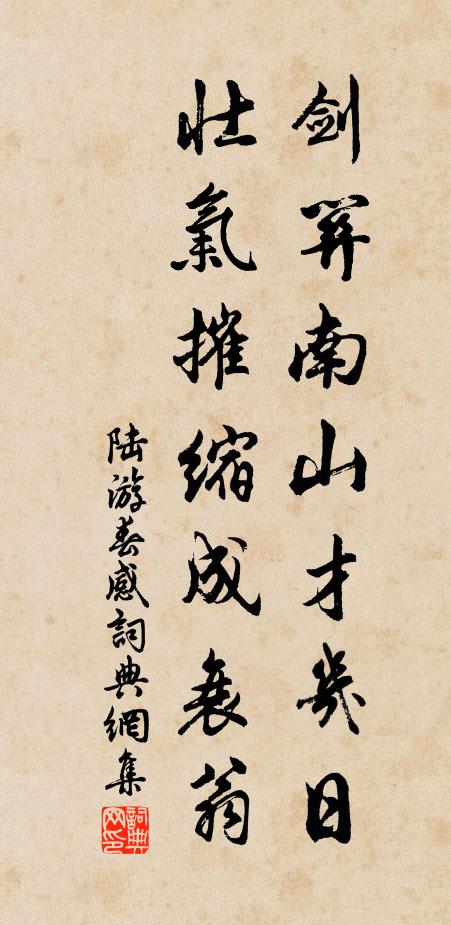 剑關南山才幾日
壮氣摧縮成衰翁
陸游春感詞典網集
詞典网印